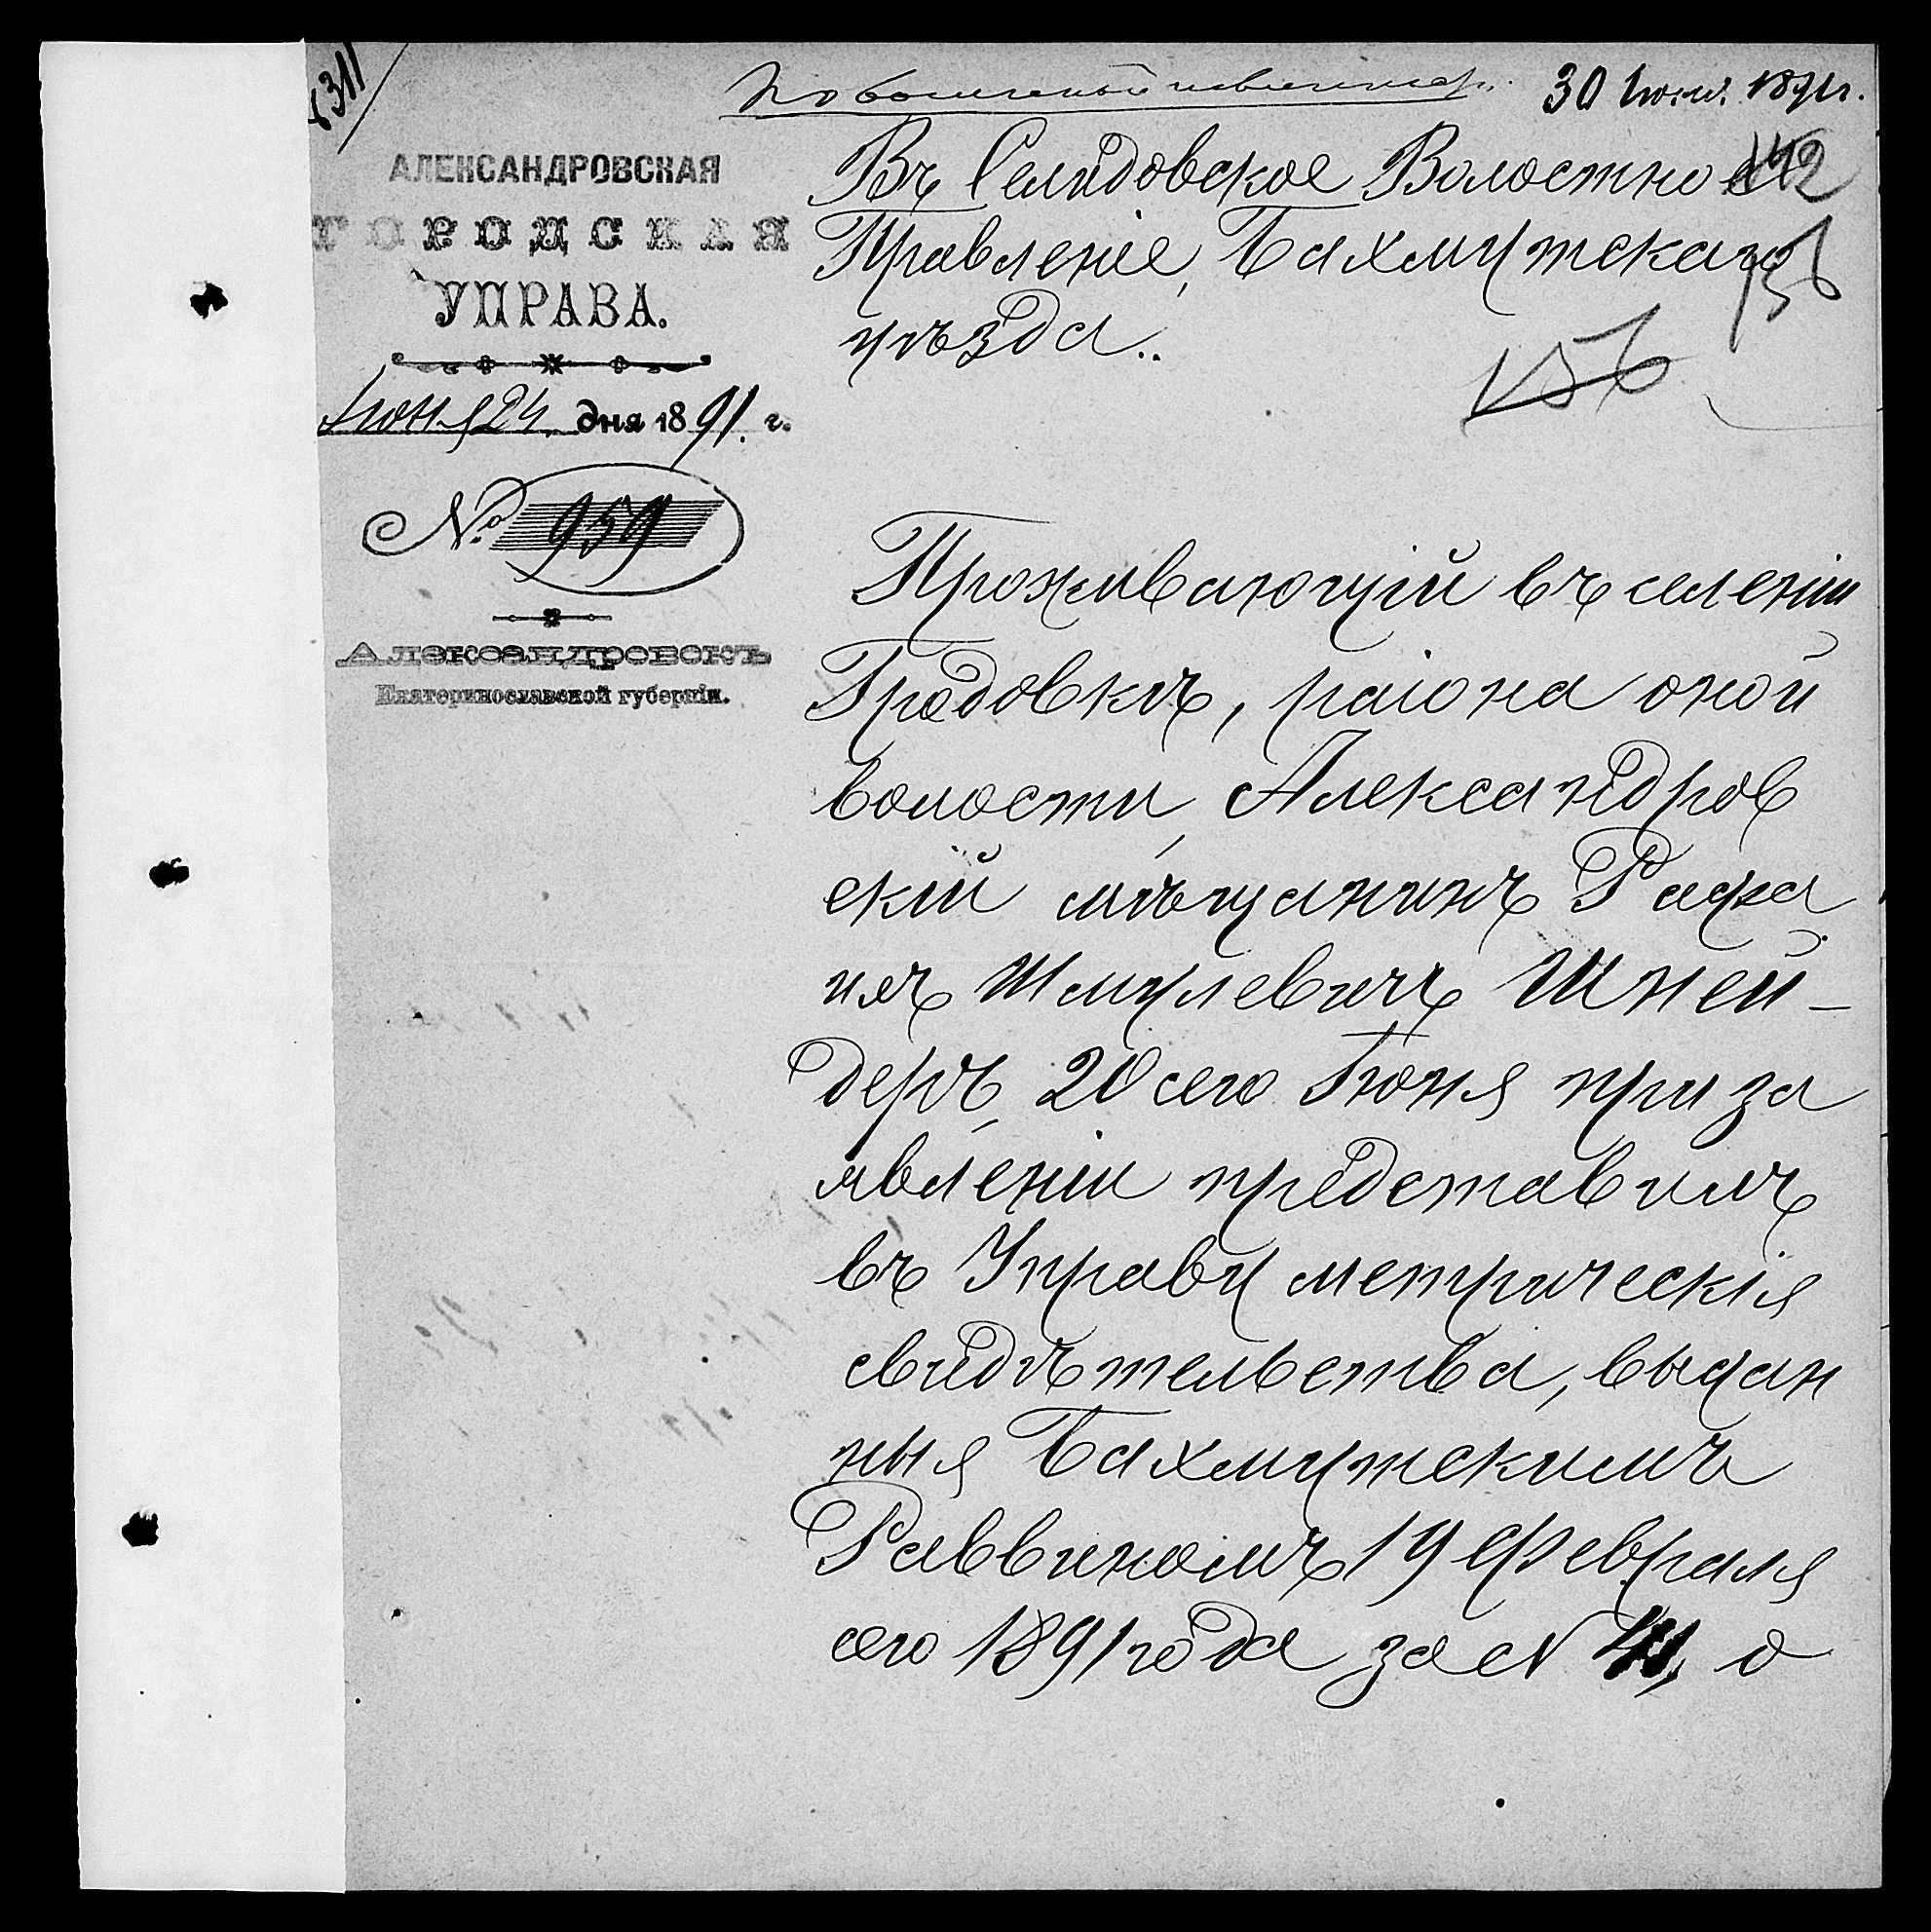 30 Июн. 1891 г.
АЛЕКСАНДРОВСКАЯ
ГОРОДСКАЯ
УПРАВА.
Іюня 24 дня 1891. г.
№ 959
Александровскъ
Екатеринославской губерніи.
Въ Селидовское Волостное
142
Правленіе, Бахмутскаго
уѣзда..
156
Проживающій въ селеніи
Гродовкѣ, раіона оной
волости, Александров
скій мѣщанинъ Рафа
илъ Шмулевичъ Шней-
деръ, 20 сего Іюня при за
явленіи представилъ
въ Управу метрическія
свидѣтельства, выдан
ныя Бахмутскимъ
Раввиномъ 19 Февраля
сего 1891 года за № 41, о